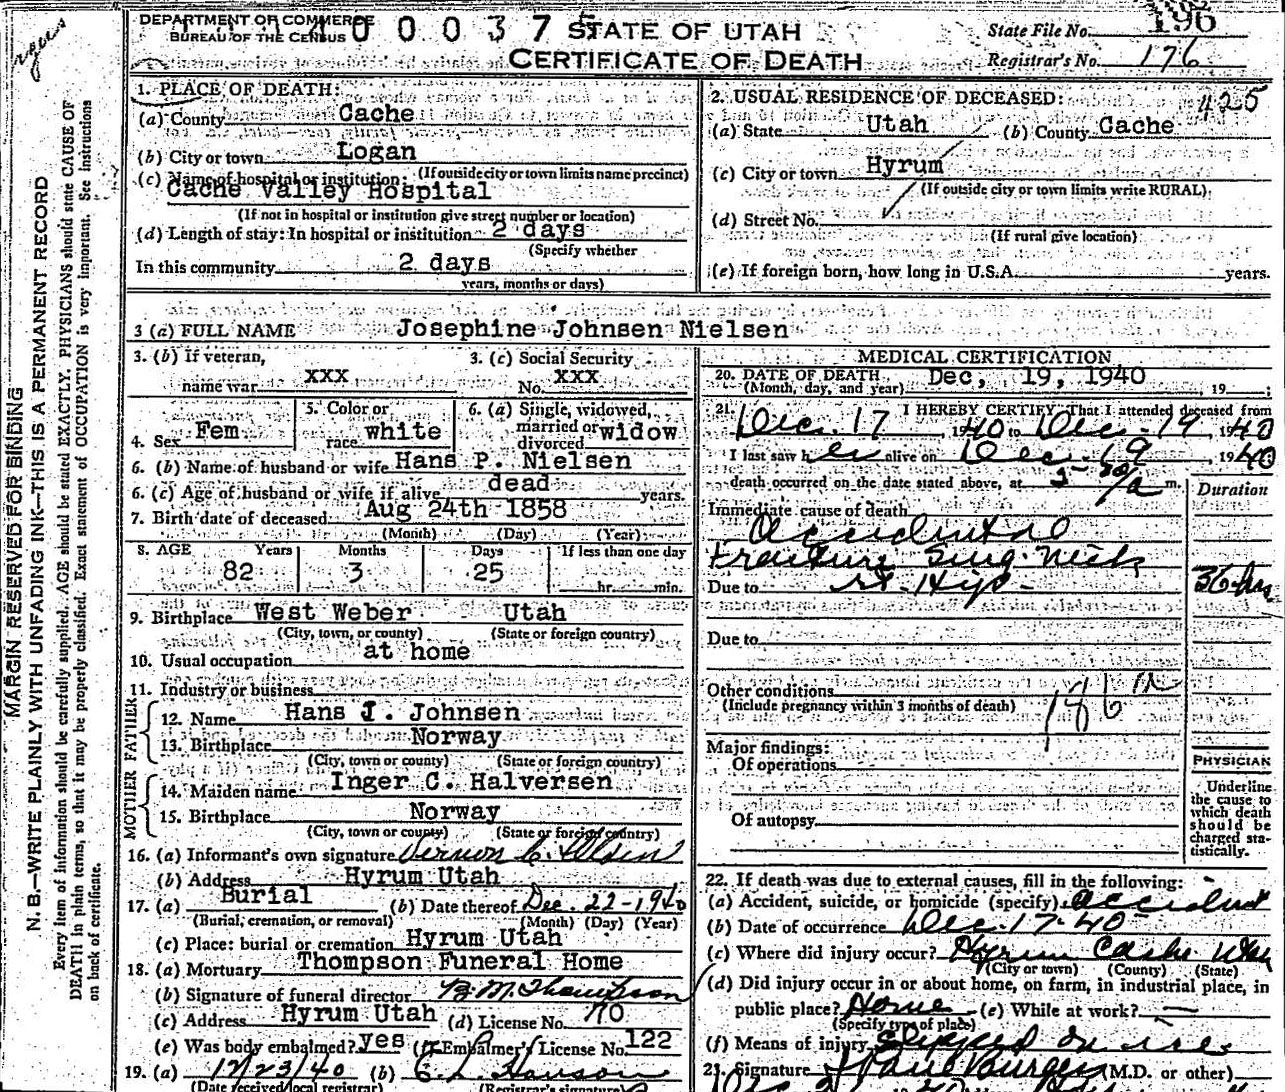 DEPARTMENT OF COMMERCE
BUREAU OF THE CENSUS
0 0 0 3 7
STATE OF UTAH
CERTIFICATE OF DEATH
State File No. 196
Registrar's No. 176
MARGIN RESERVED FOR BINDING
N. B.—WRITE PLAINLY WITH UNFADING INK—THIS IS A PERMANENT RECORD
Every item of information should be carefully supplied. AGE should be stated EXACTLY. PHYSICIANS should state CAUSE OF
DEATH in plain terms, so that it may be properly classified. Exact statement of OCCUPATION is very important. See Instructions
on back of certificate.
1. PLACE OF DEATH:
(a) County Cache
(b) City or town Logan
(c) Name of hospital or institution: (If outside city or town limits name precinct)
Cache Valley Hospital
(If not in hospital or institution give street number or location)
(d) Length of stay: In hospital or institution 2 days
(Specify whether
In this community 2 days
years, months or days)
2. USUAL RESIDENCE OF DECEASED: 425
(a) State Utah (b) County Cache
(c) City or town Hyrum
(If outside city or town limits write RURAL)
(d) Street No.
(If rural give location)
(e) If foreign born, how long in U.S.A. years.
3 (a) FULL NAME Josephine Johnsen Nielsen
3. (b) If veteran, name war xxx
3. (c) Social Security No. xxx
4. Sex Fem
5. Color or race white
6. (a) Single, widowed, married or divorced widow
6. (b) Name of husband or wife Hans P. Nielsen
6. (c) Age of husband or wife if alive dead years.
7. Birth date of deceased Aug 24th 1858
(Month) (Day) (Year)
8. AGE Years Months Days If less than one day
82 3 25 hr. min.
9. Birthplace West Weber Utah
(City, town, or county) (State or foreign country)
10. Usual occupation at home
11. Industry or business
FATHER
12. Name Hans J. Johnsen
13. Birthplace Norway
(City, town or county) (State or foreign country)
MOTHER
14. Maiden name Inger C. Halversen
15. Birthplace Norway
(City, town or county) (State or foreign country)
16. (a) Informant's own signature Vernon C.
(b) Address Hyrum Utah
17. (a) Burial (b) Date thereof Dec. 22-1940
(Burial, cremation, or removal) (Month) (Day) (Year)
(c) Place: burial or cremation Hyrum Utah
18. (a) Mortuary Thompson Funeral Home
(b) Signature of funeral director Thompson
(c) Address Hyrum Utah (d) License No. 70
(e) Was body embalmed? yes (f) Embalmer's License No. 122
19. (a) 12/23/40 (b)
(Date received local registrar) (Registrar's signature)
MEDICAL CERTIFICATION
20. DATE OF DEATH Dec, 19, 1940
(Month, day, and year) , 19 ;
21. I HEREBY CERTIFY, That I attended deceased from
Dec. 17, 1940 to Dec. 19, 1940
I last saw her alive on Dec. 19 1940
death occurred on the date stated above, at m.
Duration
Immediate cause of death
Accidental
Fracture Surg. Neck
Due to rt. Hip 36 hrs
Due to
Other conditions
(Include pregnancy within 3 months of death)
186
Major findings:
Of operations
Of autopsy
PHYSICIAN
Underline
the cause to
which death
should be
charged sta-
tistically.
22. If death was due to external causes, fill in the following:
(a) Accident, suicide, or homicide (specify) Accident
(b) Date of occurrence Dec. 17-40
(c) Where did injury occur? Hyrum Cache Utah
(City or town) (County) (State)
(d) Did injury occur in or about home, on farm, in industrial place, in
public place? Home (e) While at work? —
(Specify type of place)
(f) Means of injury Slipped on ice
23. Signature (M.D. or other)